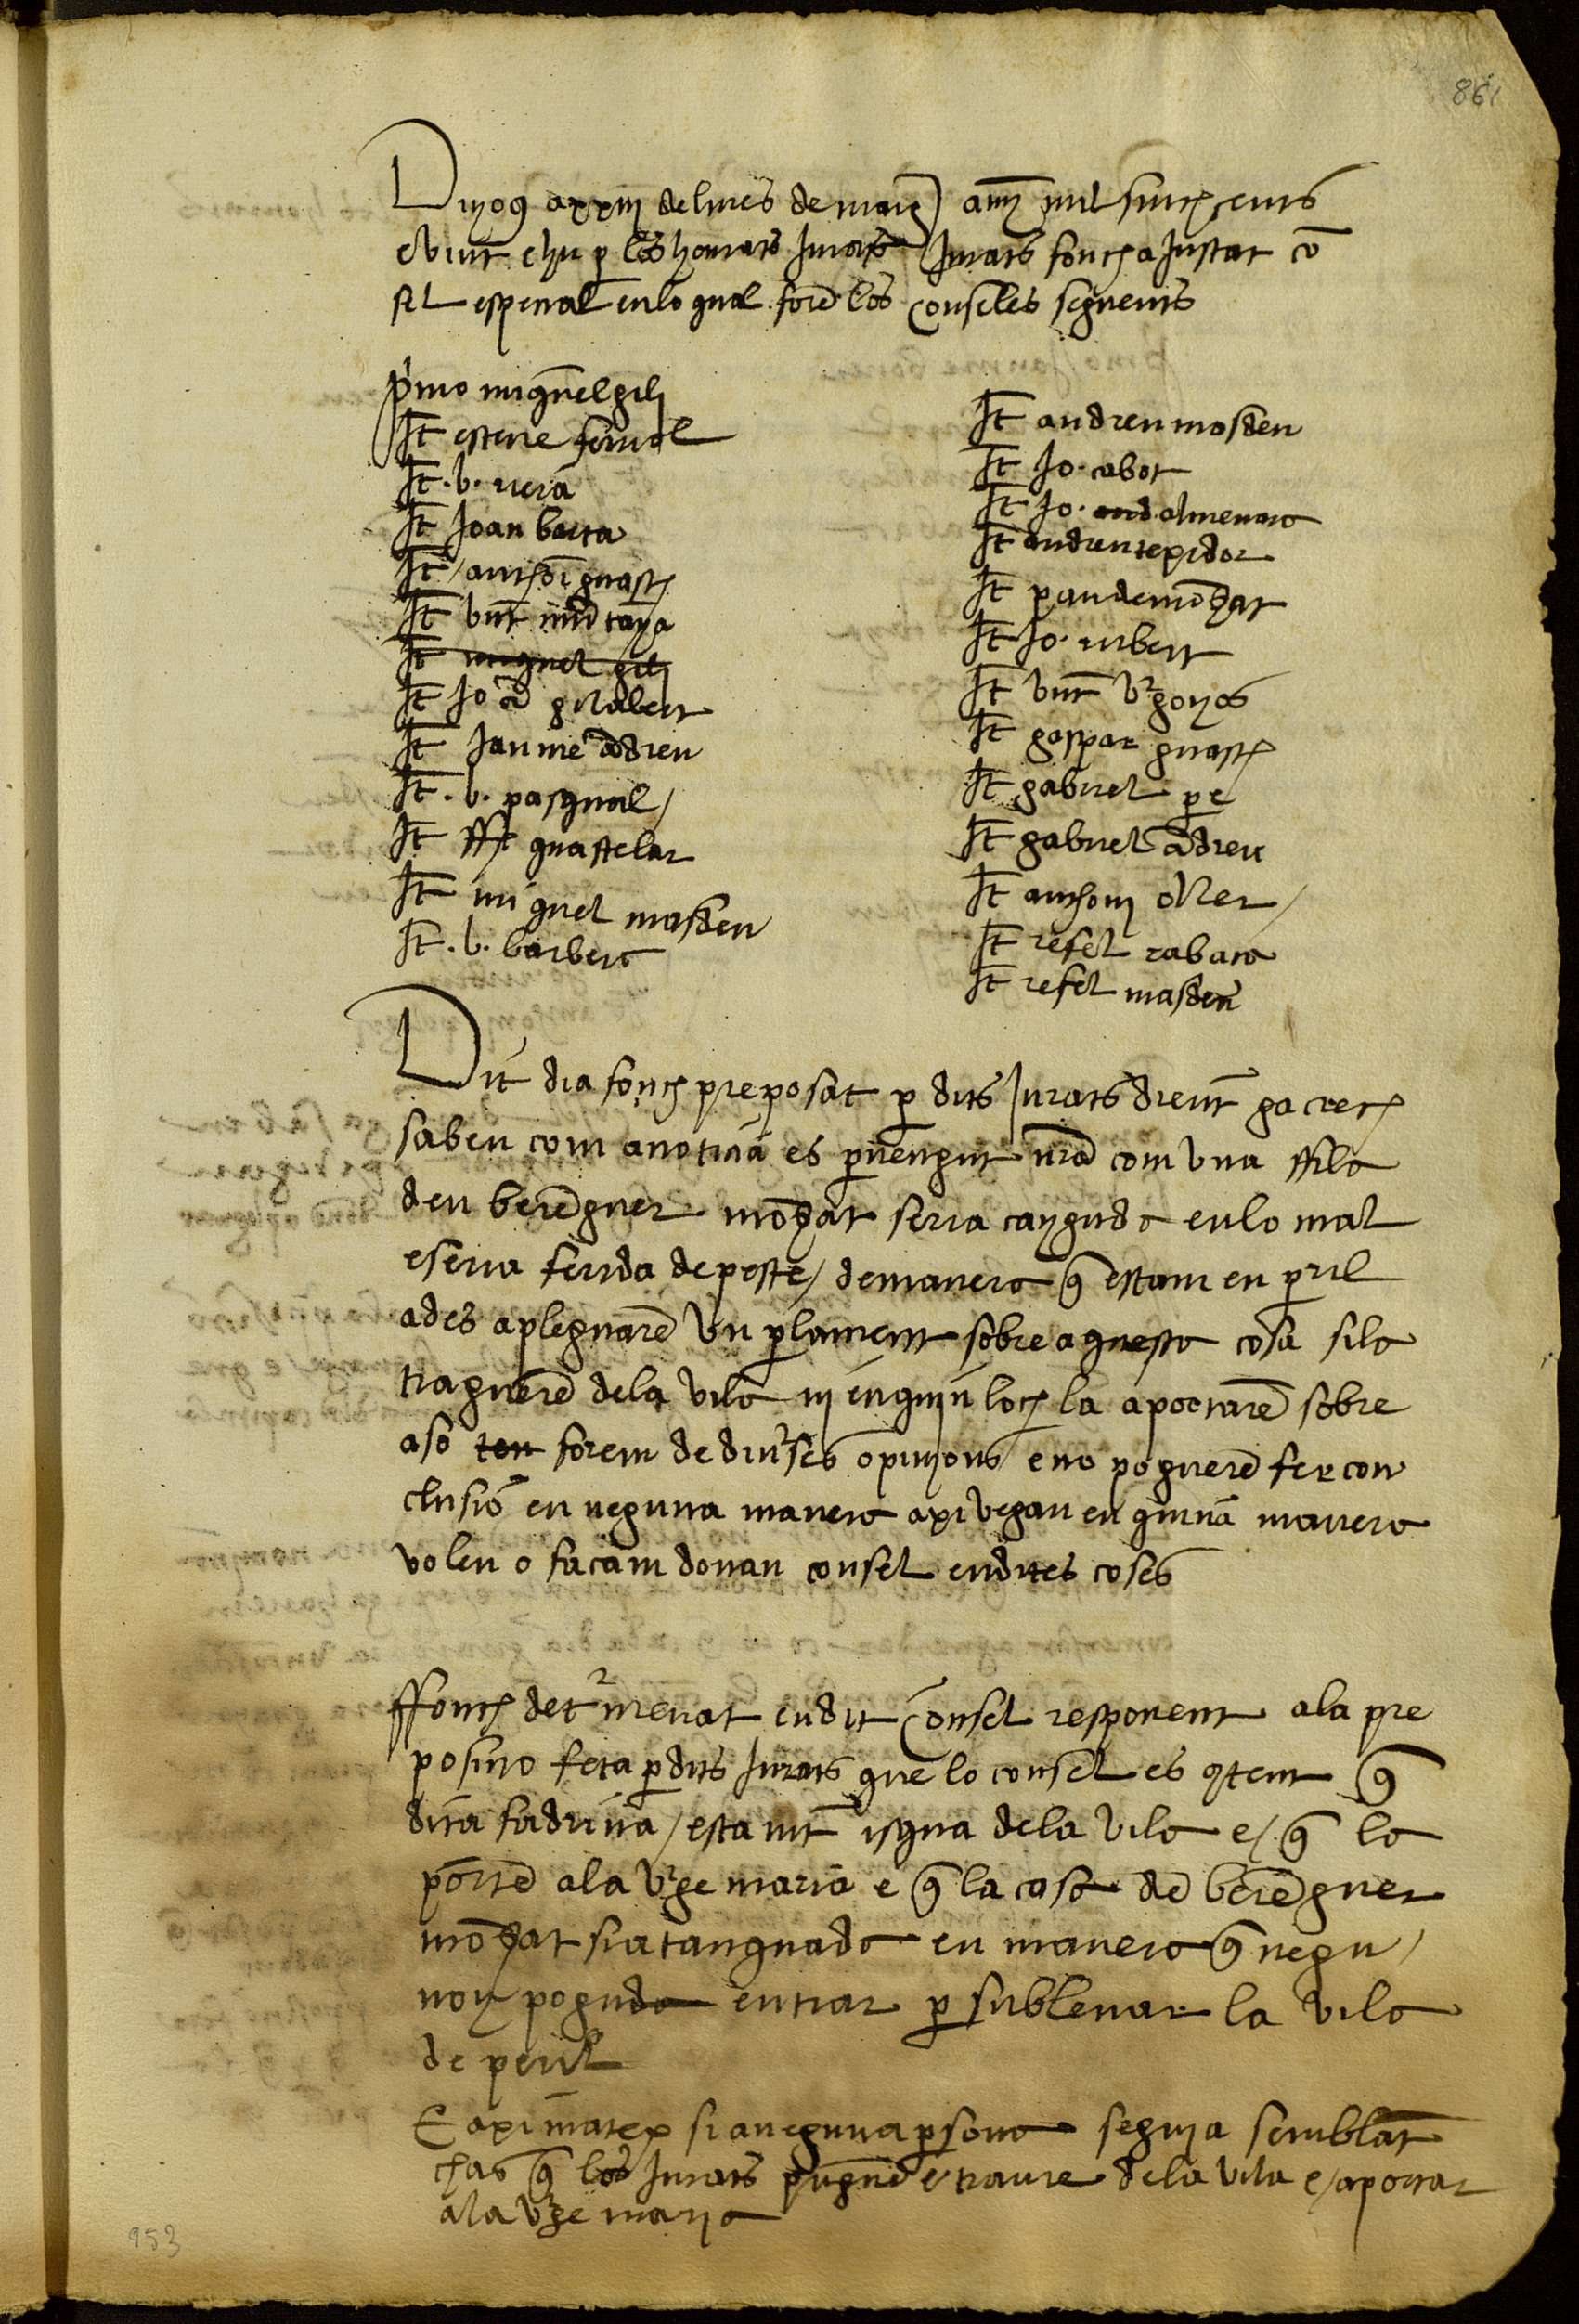 861
Dijoƽ a xxiij del mes de mag any mil sinch sents
e vint e hu per los honrats Jurats Jurats fonch aJustat co
sel espesial en lo qual foren los conseles seguents
primo miquel gili
It esteve femol
It .b. riera
It Joan barta
It anthoni guasch
It vint
It miquel gili
It Jo gilabert
It Jaume adreu
It .b. pasqual
It ffr guastelar
It miquel masdeu
It .b. barbero
It andreu mosdeu
It Jo. cabot
It Jo. and almenara
It andreu texidor
It pau de motzat
It Jo. rubert
It vint burgoyos
It gaspar guasch
It gabriel pere
It gabriel adreu
It anthoni oller
It refel rabaca
It refel masdeu
Dit dia fonch preposat per dits Jurats dient ga crech
saben com a noticia es pervengut nra com una ffila
den berenguer motzat seria cayguda en lo mal
e seria ferida de peste / de manera que estam en peril
ades aplegarem un parlament sobre aquesta cosa si la
traguerem dela vila ni en quin loch la aportarem sobre
aso ten forem de diverses opinions e no poguerem fer con
clusio en neguna manera axi vegan en quina manera
volen o facam donan consel en dites coses
ffonch determenat en dit consel responent a la pre
posisio feta per dits Jurats que lo consel es content que
dita fadrina / esta nit isqua de la vila e / que la
porten a la verge maria e que la casa den berenguer
motzat sia tanquada en manera que negu
noy poguda entrar per sublevar la vila
de peril
E axi matex si a neguna persona seguia semblant
chas que los Jurats puguen traure dela vila e / aportar
a la verge maria
953